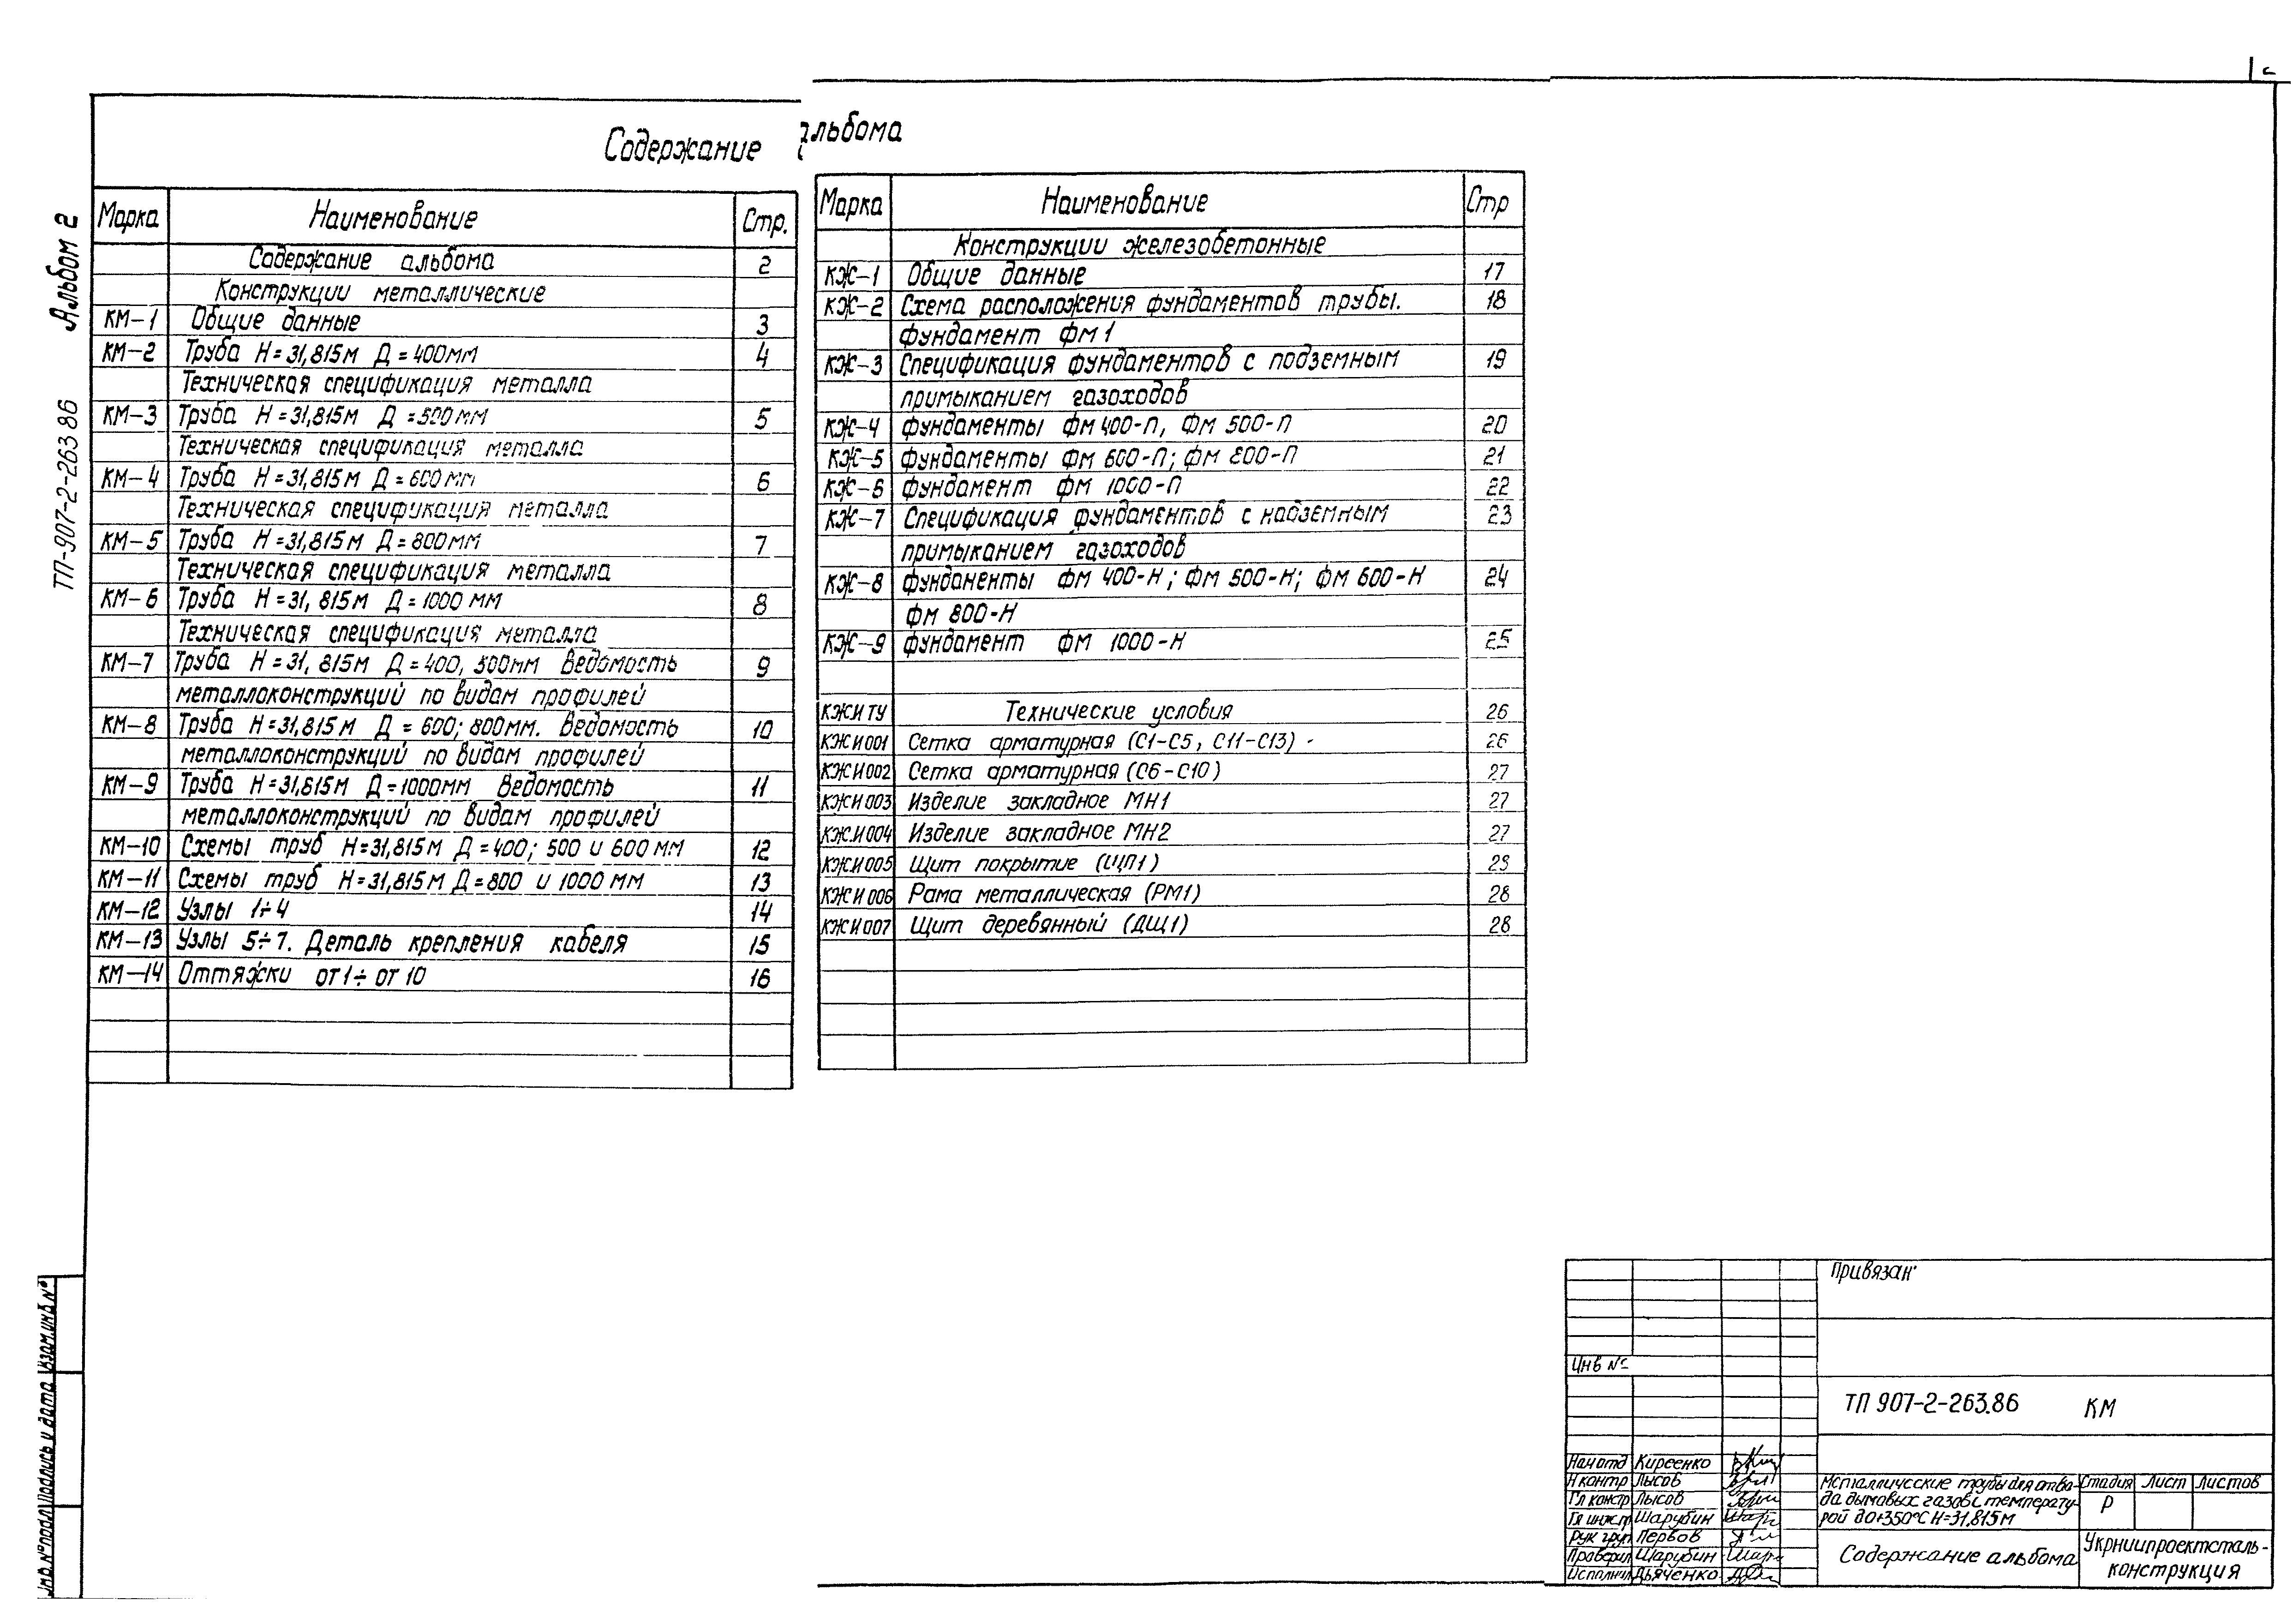 Содержание альбома
Альбом 2
ТП-907-2-263 86
Марка Наименование Стр.
Содержание альбома 2
Конструкции металлические
КМ-1 Общие данные 3
КМ-2 Труба Н=31,815м Д=400мм 4
Техническая спецификация металла
КМ-3 Труба Н=31,815м Д=500мм 5
Техническая спецификация металла
КМ-4 Труба Н=31,815м Д=600мм 6
Техническая спецификация металла
КМ-5 Труба Н=31,815м Д=800мм 7
Техническая спецификация металла
КМ-6 Труба Н=31,815м Д=1000мм 8
Техническая спецификация металла
КМ-7 Труба Н=31,815м Д=400, 500мм Ведомость 9
металлоконструкций по видам профилей
КМ-8 Труба Н=31,815м Д=600; 800мм. Ведомость 10
металлоконструкций по видам профилей
КМ-9 Труба Н=31,815м Д=1000мм Ведомость 11
металлоконструкций по видам профилей
КМ-10 Схемы труб Н=31,815м Д=400; 500 и 600мм 12
КМ-11 Схемы труб Н=31,815м Д=800 и 1000мм 13
КМ-12 Узлы 1÷4 14
КМ-13 Узлы 5÷7. Деталь крепления кабеля 15
КМ-14 Оттяжки от1÷ от10 16
Марка Наименование Стр
Конструкции железобетонные
КЖ-1 Общие данные 17
КЖ-2 Схема расположения фундаментов трубы. 18
фундамент ФМ1
КЖ-3 Спецификация фундаментов с подземным 19
примыканием газоходов
КЖ-4 фундаменты ФМ400-П, ФМ 500-П 20
КЖ-5 фундаменты ФМ 600-П; ФМ 800-П 21
КЖ-6 фундамент ФМ 1000-П 22
КЖ-7 Спецификация фундаментов с надземным 23
примыканием газоходов
КЖ-8 фундаменты ФМ 400-Н; ФМ 500-Н; ФМ 600-Н 24
ФМ 800-Н
КЖ-9 фундамент ФМ 1000-Н 25
КЖИ ТУ Технические условия 26
КЖИ001 Сетка арматурная (С1-С5, С11-С13) 26
КЖИ002 Сетка арматурная (С6-С10) 27
КЖИ003 Изделие закладное МН1 27
КЖИ004 Изделие закладное МН2 27
КЖИ005 Щит покрытие (ЩП1) 28
КЖИ006 Рама металлическая (РМ1) 28
КЖИ007 Щит деревянный (ДЩ1) 28
Инв.№подл Подпись и дата Взам.инв.№
Привязан:
Инв №
ТП 907-2-263.86 КМ
Нач отд Киреенко
Н контр Лысов
Гл констр Лысов
Гл инж.пр Шарубин
Рук груп Первов
Проверил Шарубин
Исполнил Дьяченко
Металлические трубы для отво-
да дымовых газов с температу-
рой до+350°С Н=31,815м
Стадия Лист Листов
Р
Содержание альбома
Укрниипроектсталь-
конструкция